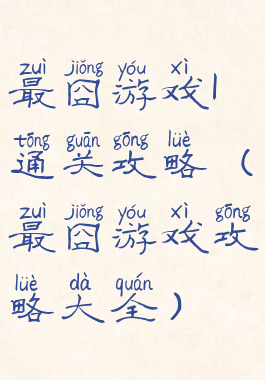 zuì jiǒng yóu xì
最囧游戏1
tōng guān gōng lüè
通关攻略（
zuì jiǒng yóu xì gōng
最囧游戏攻
lüè dà quán
略大全）